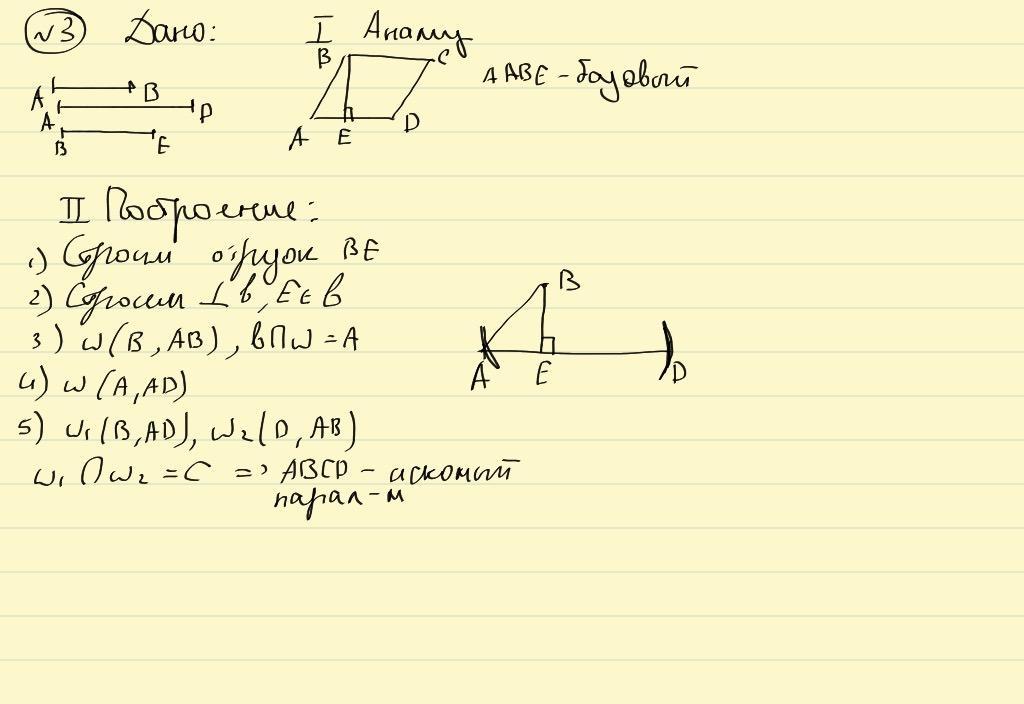 №3 Дано:
A B
A D
B E
I Анализ
B C
A E D
ΔABE - базовый
II Построение:
1) Строим отрезок BE
2) Строим ⊥ b, E ∈ b
3) ω(B, AB), b ∩ ω = A
4) ω(A, AD)
5) ω₁(B, AD), ω₂(D, AB)
ω₁ ∩ ω₂ = C => ABCD - искомый
парал-м
B
A E D